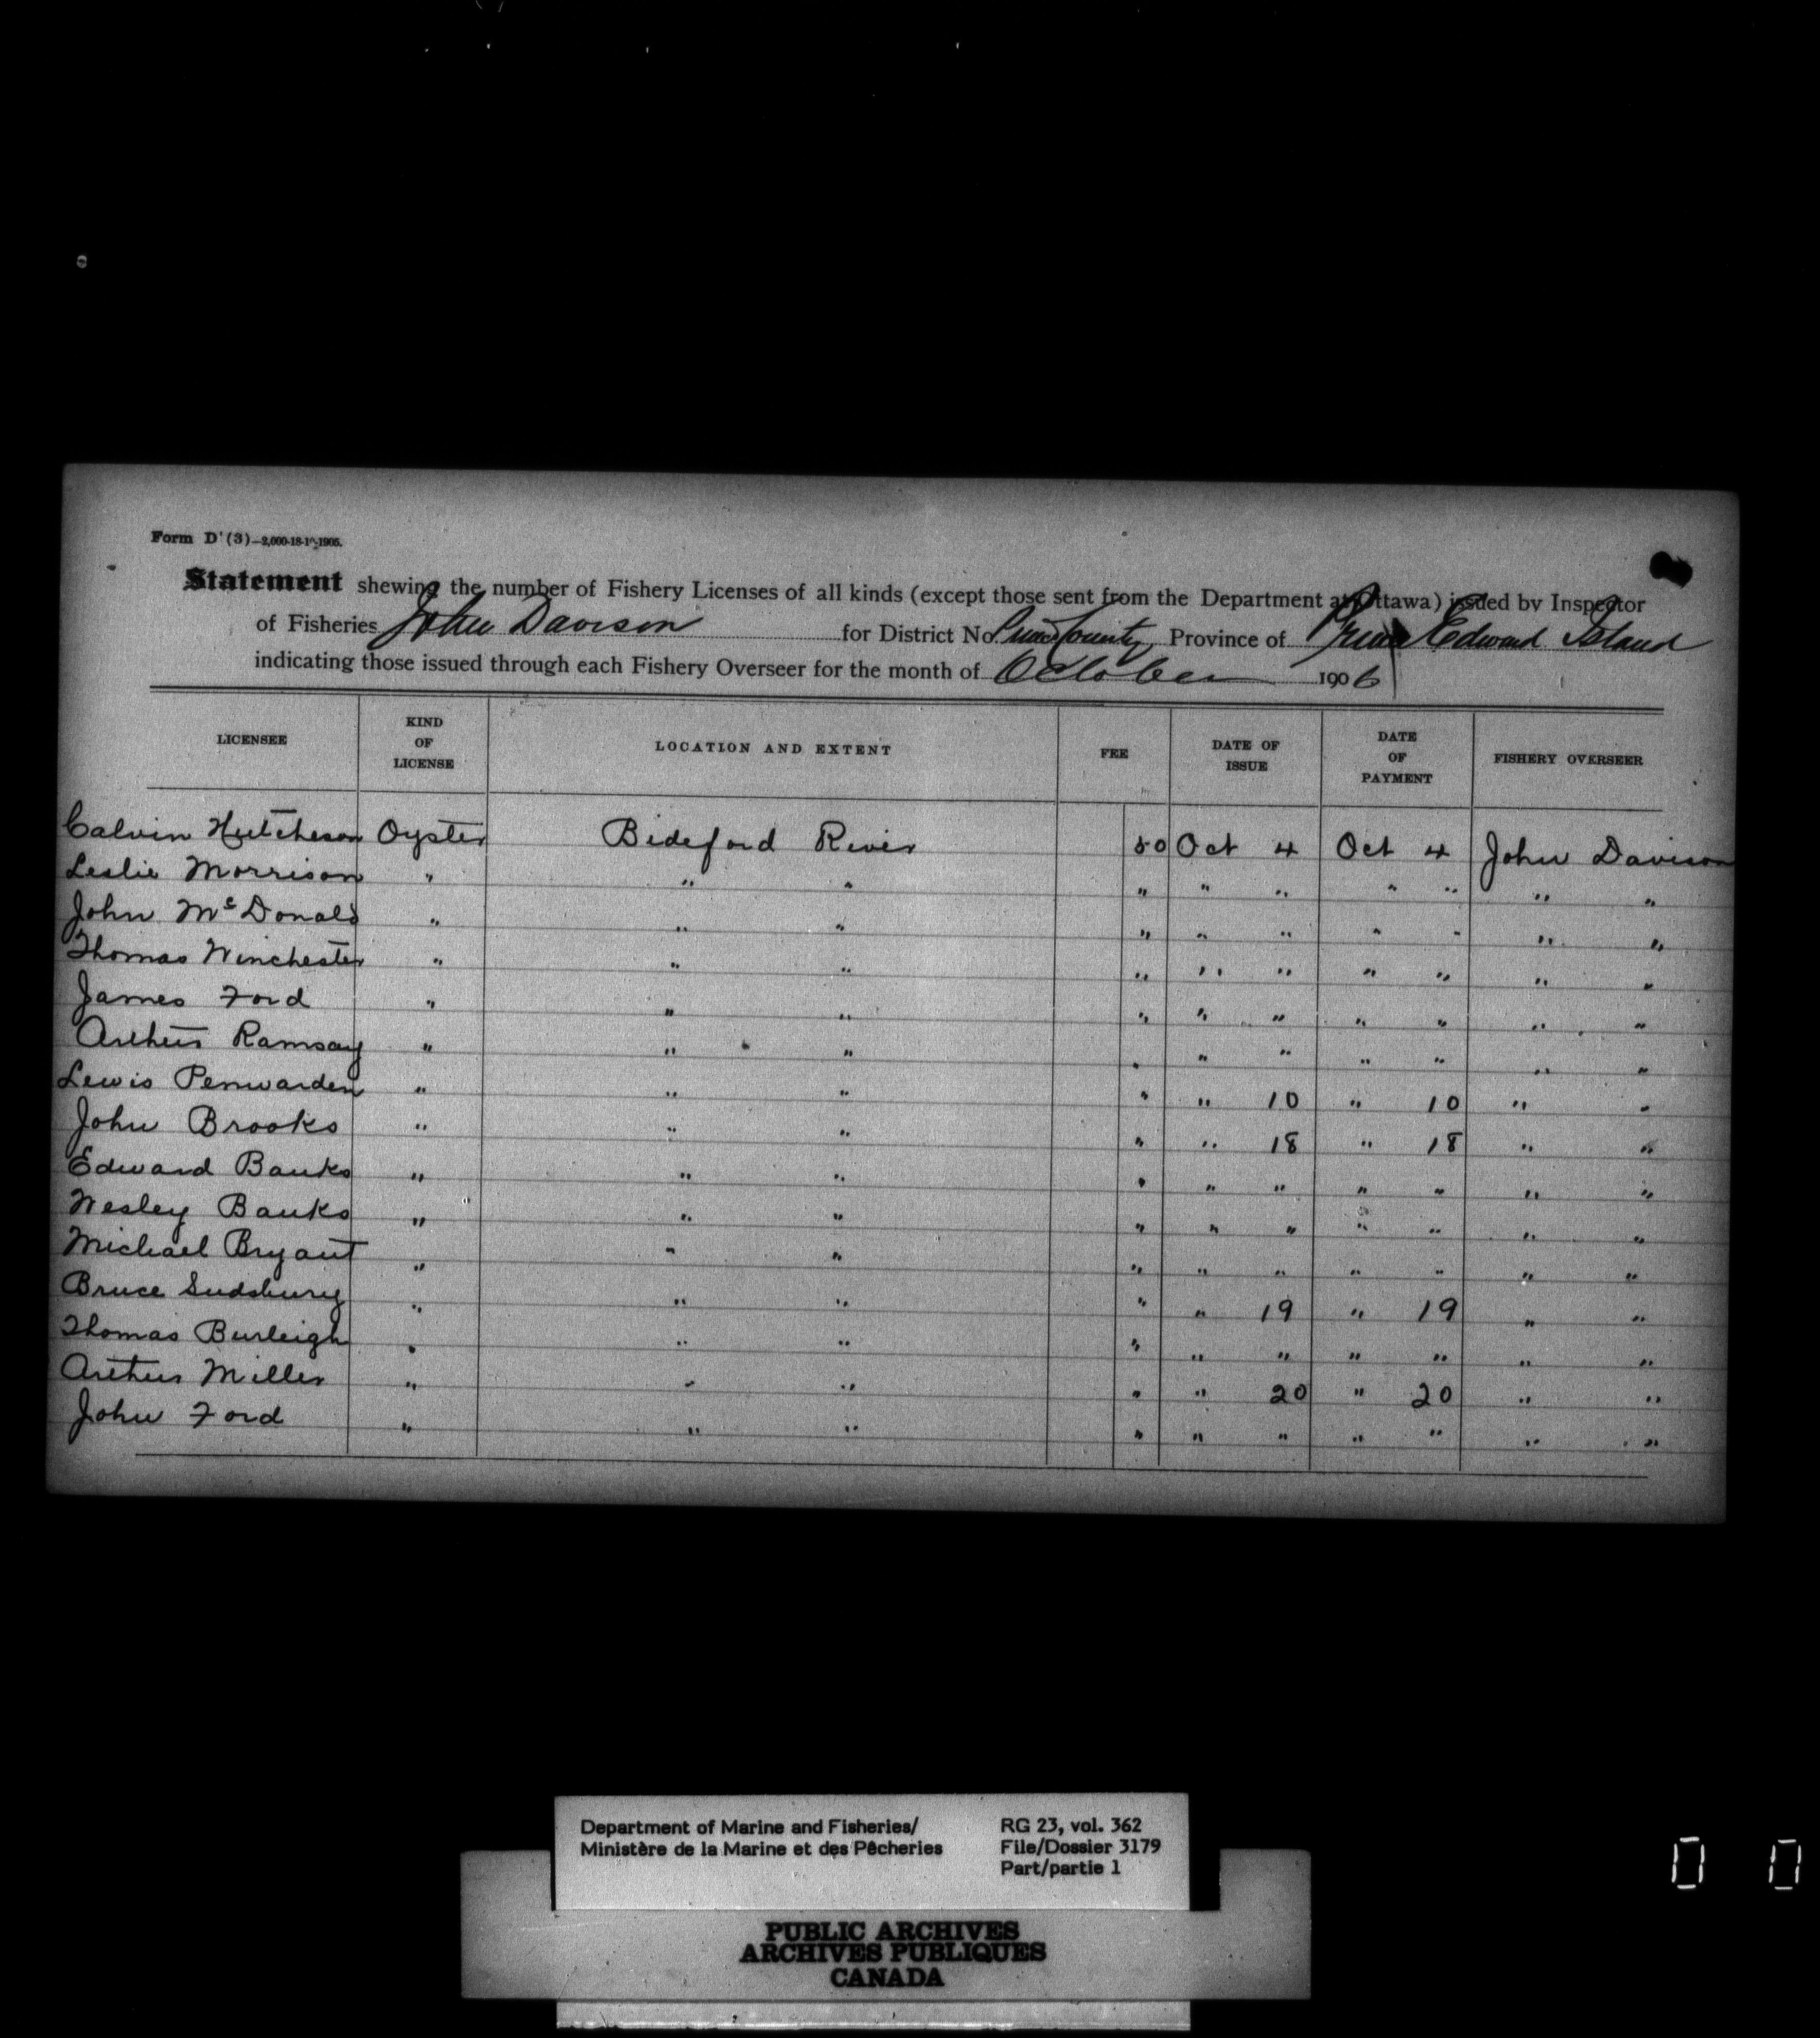 Form D'(3)—2,000-18-10-1905.
Statement shewing the number of Fishery Licenses of all kinds (except those sent from the Department at Ottawa) issued by Inspector
of Fisheries John Davison for District No. Prince County Province of Prince Edward Island
indicating those issued through each Fishery Overseer for the month of October 1906
LICENSEE KIND OF LICENSE LOCATION AND EXTENT FEE DATE OF ISSUE DATE OF PAYMENT FISHERY OVERSEER
Calvin Hutcheson Oyster Bideford River 50 Oct 4 Oct 4 John Davison
Leslie Morrison " " " " " " " " " "
John McDonald " " " " " " " " " "
Thomas Winchester " " " " " " " " " "
James Ford " " " " " " " " " "
Arthur Ramsay " " " " " " " " " "
Lewis Penwarden " " " " " 10 " 10 " "
John Brooks " " " " " 18 " 18 " "
Edward Banks " " " " " " " " " "
Wesley Banks " " " " " " " " " "
Michael Bryant " " " " " " " " " "
Bruce Sudsbury " " " " " 19 " 19 " "
Thomas Burleigh " " " " " " " " " "
Arthur Miller " " " " " 20 " 20 " "
John Ford " " " " " " " " " "
Department of Marine and Fisheries/ RG 23, vol. 362
Ministère de la Marine et des Pêcheries File/Dossier 3179
Part/partie 1
PUBLIC ARCHIVES
ARCHIVES PUBLIQUES
CANADA
0 0